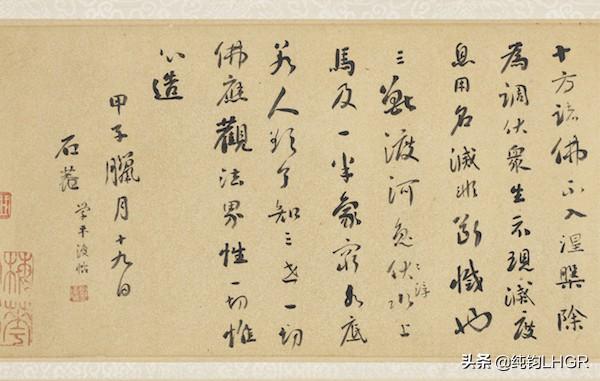 十方諸佛不入涅槃除
為調伏眾生示現滅度
息用名滅非斷懺也
三獸渡河兔伏水上
浮
馬及一半象窮水底
若人欲了知三世一切
佛應觀法界性一切惟
心造
甲子臘月十九日
石菴
學平復帖
头条 @纯钧LHGR